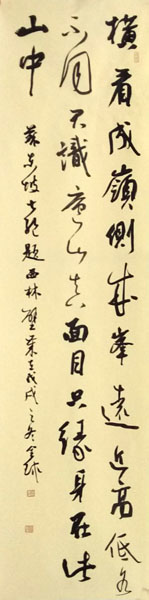 橫看成嶺側成峯遠近高低各
不同不識廬山真面目只緣身在此
山中
蘇東坡七絕題西林壁 戊戌之冬